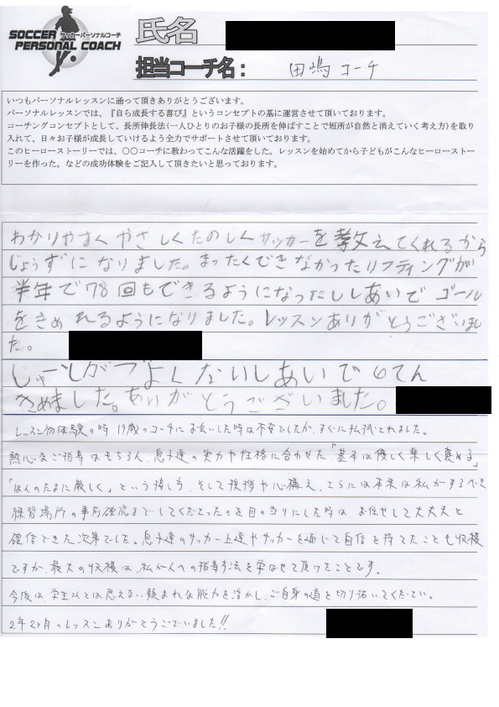 SOCCER サッカーパーソナルコーチ
PERSONAL COACH
氏名
担当コーチ名： 田嶋コーチ
いつもパーソナルレッスンに通って頂きありがとうございます。
パーソナルレッスンでは、『自ら成長する喜び』というコンセプトの基に運営させて頂いております。
コーチングコンセプトとして、長所伸長法(一人ひとりのお子様の長所を伸ばすことで短所が自然と消えていく考え方)を取り
入れて、日々お子様が成長していけるよう全力でサポートさせて頂いております。
このヒーローストーリーでは、〇〇コーチに教わってこんな活躍をした。レッスンを始めてから子どもがこんなヒーローストー
リーを作った。などの成功体験をご記入して頂きたいと思っております。
わかりやすく やさしくたのしくサッカーを教えてくれるから
じょうずになりました。まったくできなかったリフティングが
半年で78回もできるようになったししあいでゴール
をきめれるようになりました。レッスンありがとうございまし
た。
しゅーとがつよくなりしあいで6てん
きめました。ありがとうございました。
レッスン初体験の時、19歳のコーチにお会いした時は不安でしたが、すぐに払拭されました。
熱心なご指導はもちろん、息子達の実力や性格に合わせた「基本は優しく楽しく褒める」
「ほんのたまに厳しく」という接し方、そして挨拶や心構え、さらには本来は私がするべき
練習場所の事前確認までしてくださったのを目の当りにした時は、お任せして大丈夫と
確信できた次第でした。息子達のサッカー上達やサッカーを通じて自信を持てたことも収穫
ですが、最大の収穫は、私が人への指導方法を学ばせて頂けたことです。
今後は学生とは思えない類まれな能力を活かし、ご自身の道を切り拓いてください。
2年2か月のレッスンありがとうございました!!